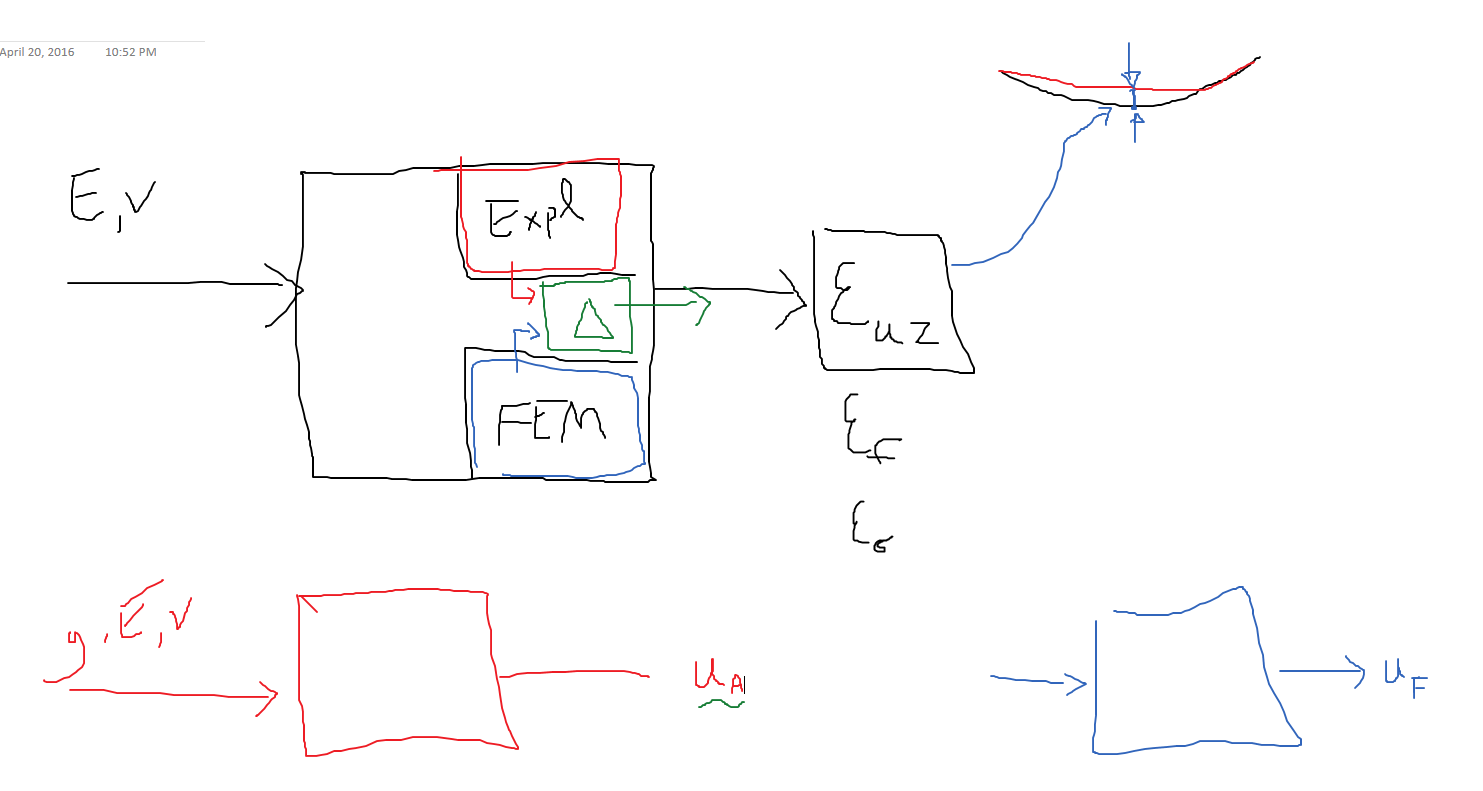 April 20, 2016 10:52 PM
E, ν
Expl
Δ
FEM
E uz
E F
E σ
g, E, ν
u A
u F